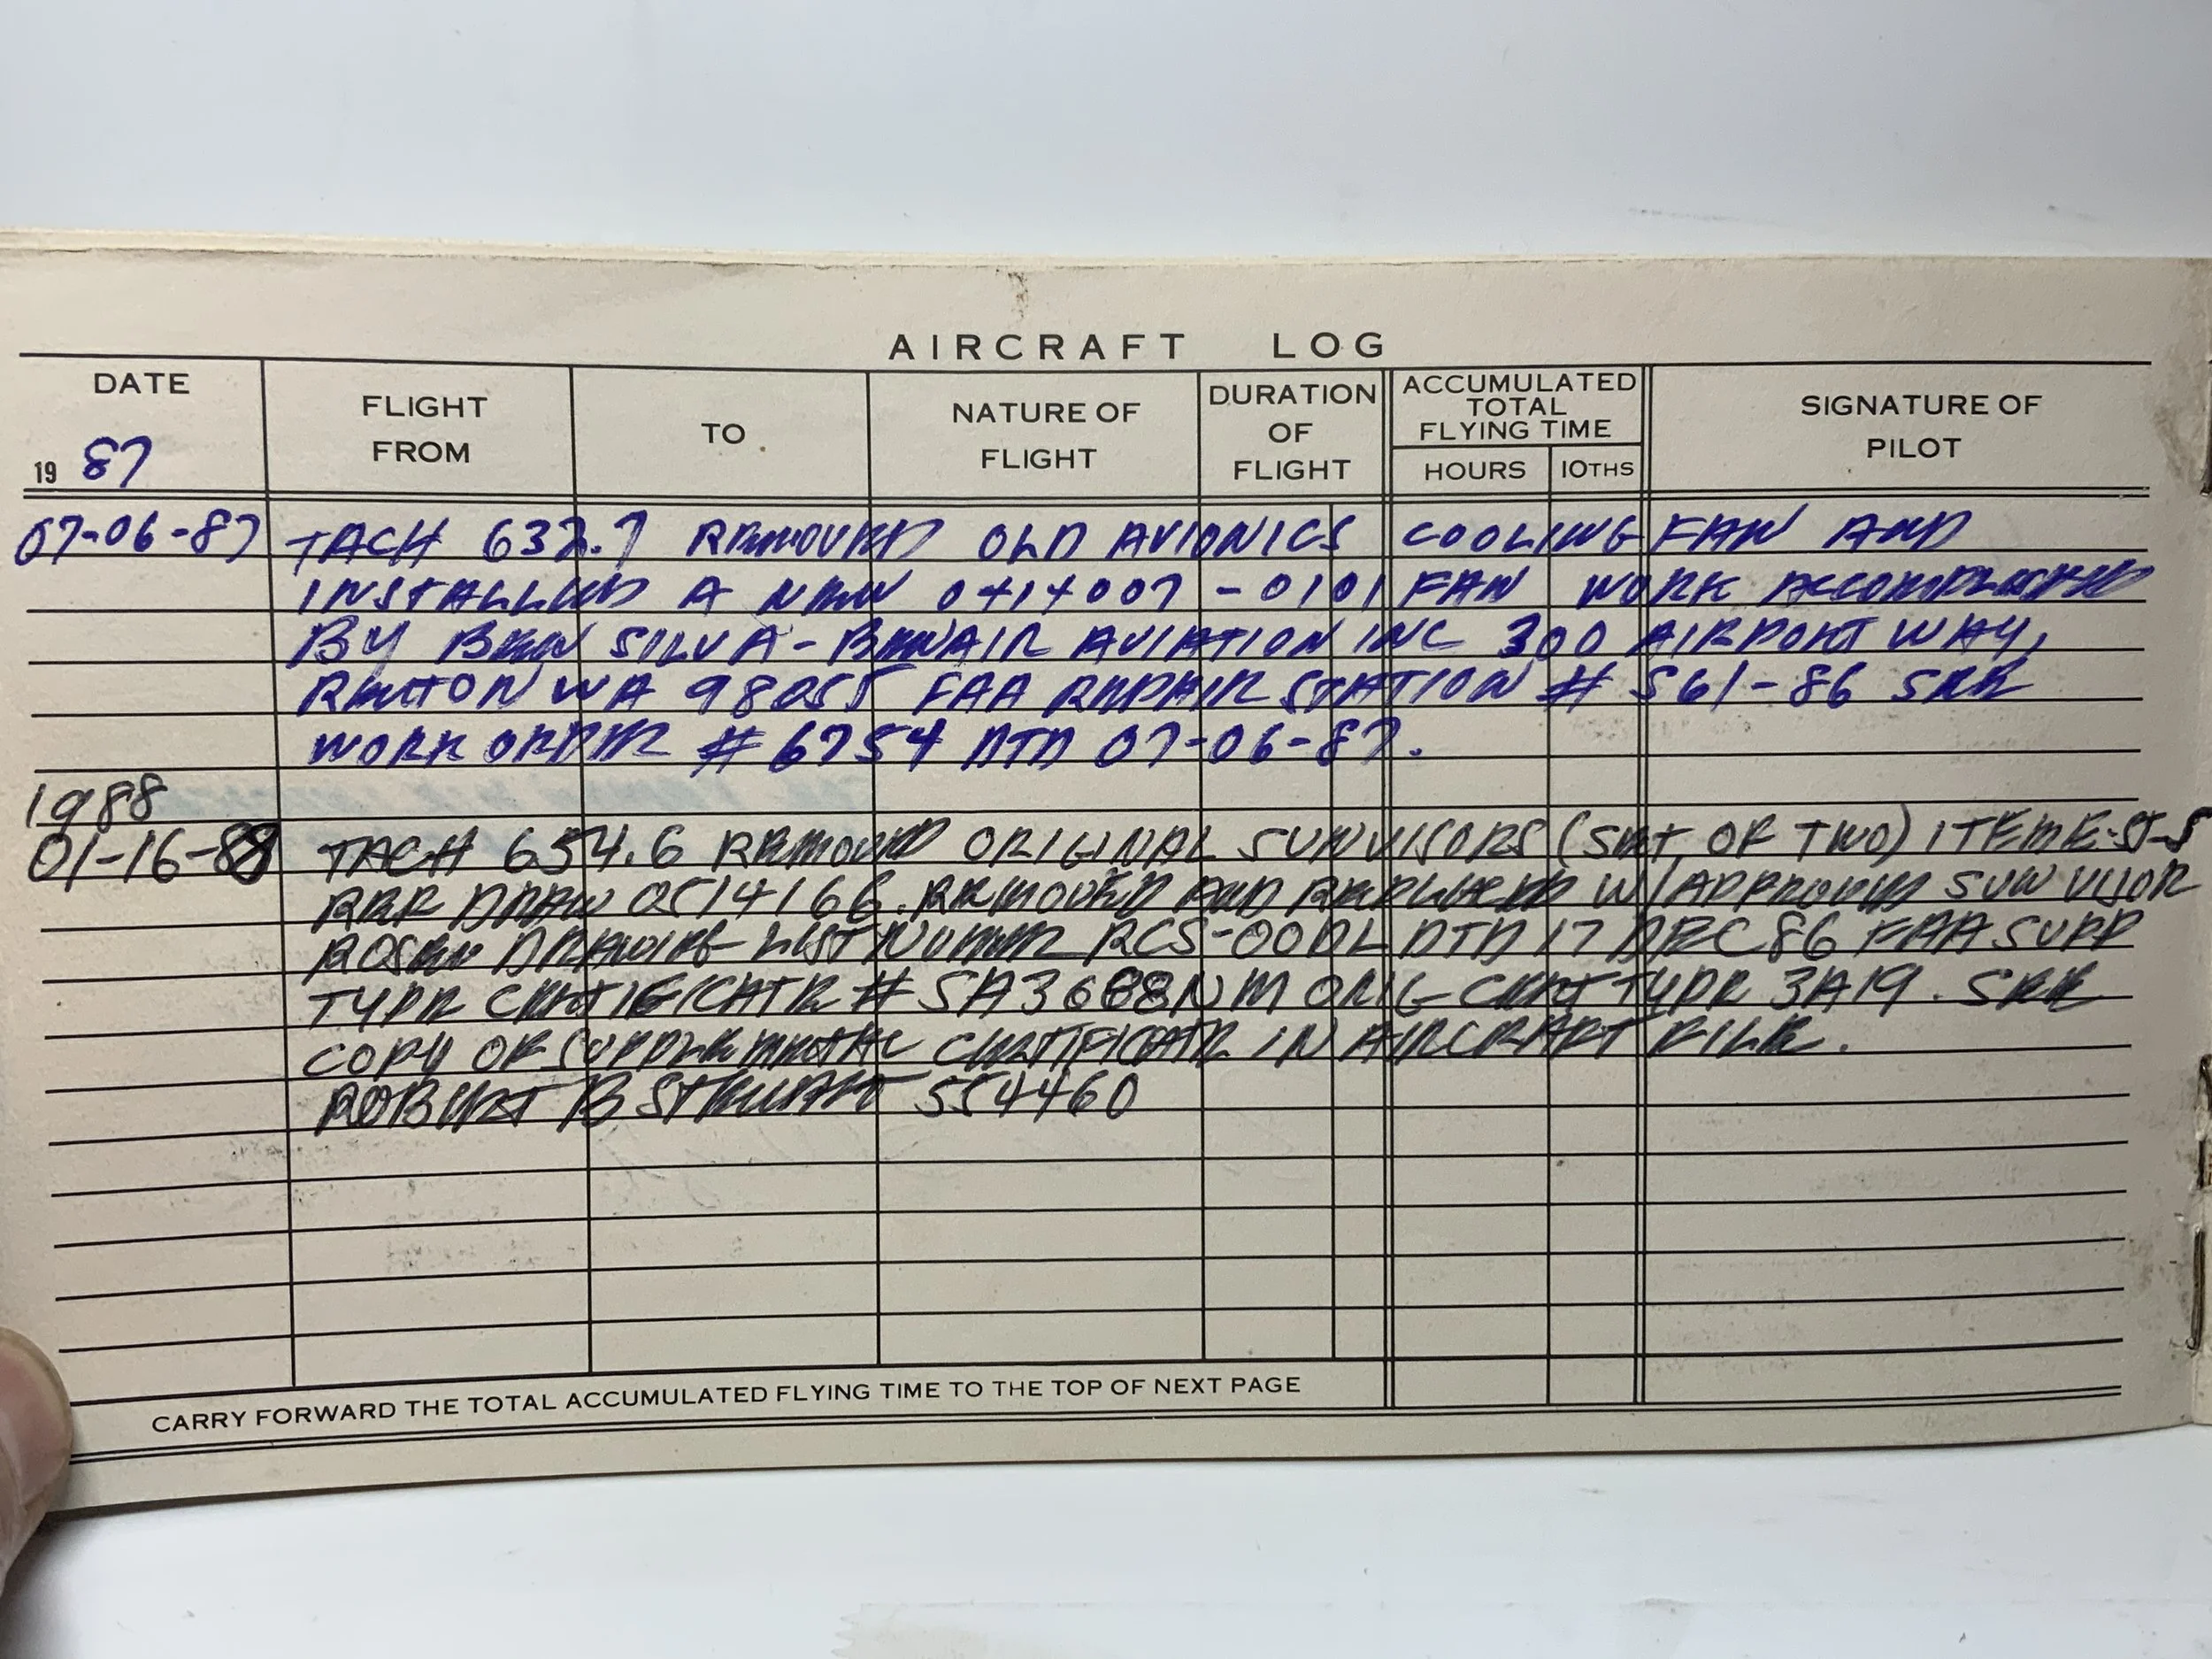 AIRCRAFT LOG
DATE
FLIGHT FROM
TO
NATURE OF FLIGHT
DURATION OF FLIGHT
ACCUMULATED TOTAL FLYING TIME
HOURS
10THS
SIGNATURE OF PILOT
19 87
07-06-87 TACH 632.7 REMOVED OLD AVIONICS COOLING FAN AND
INSTALLED A NEW 0414007-0101 FAN WORK ACCOMPLISHED
BY BEN SILVA-BENAIR AVIATION INC 300 AIRPORT WAY,
RENTON WA 98055 FAA REPAIR STATION # 561-86 SEE
WORK ORDER # 6754 DTD 07-06-87.
1988
01-16-88 TACH 654.6 REMOVED ORIGINAL SUNVISORS (SET OF TWO) ITEM
REF DRAW 0514166. REMOVED AND REPLACED W/APPROVED SUN VISOR
ROSEN DRAWING LIST NUMBER RCS-00DL DTD 17 DEC 86 FAA SUPP
TYPE CERTIFICATE # SA3688NM ORIG CERT TYPE 3A19. SEE
COPY OF SUPPLEMENTAL CERTIFICATE IN AIRCRAFT FILE.
ROBERT B STEWART 554460
CARRY FORWARD THE TOTAL ACCUMULATED FLYING TIME TO THE TOP OF NEXT PAGE